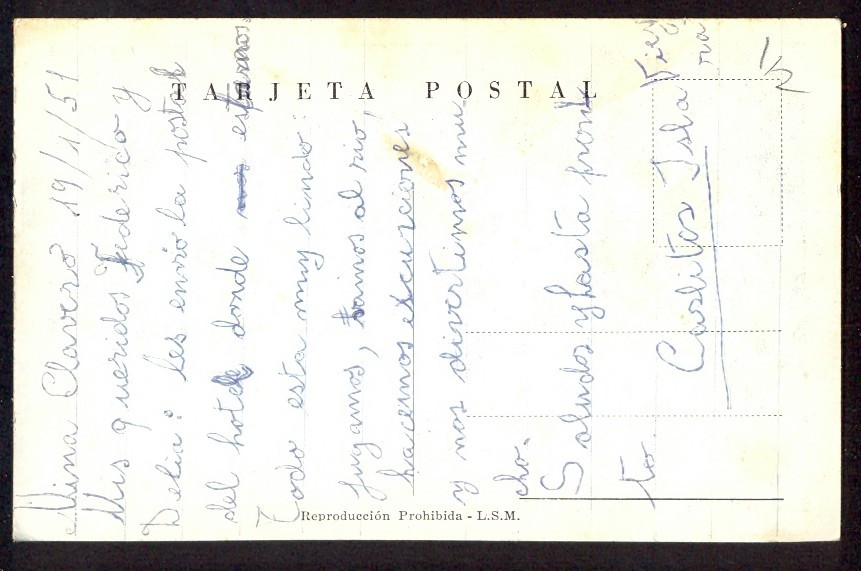 TARJETA POSTAL
Mina Clavero 19/1/51
Mis queridos Federico y
Delia: les envio la postal
del hotel donde estamos.
Todo esta muy lindo:
jugamos, vamos al rio,
hacemos escurciones
y nos divertimos mu
cho.
Saludos y hasta pron
to.
Carlitos Isla Vie
na
Reproducción Prohibida - L.S.M.